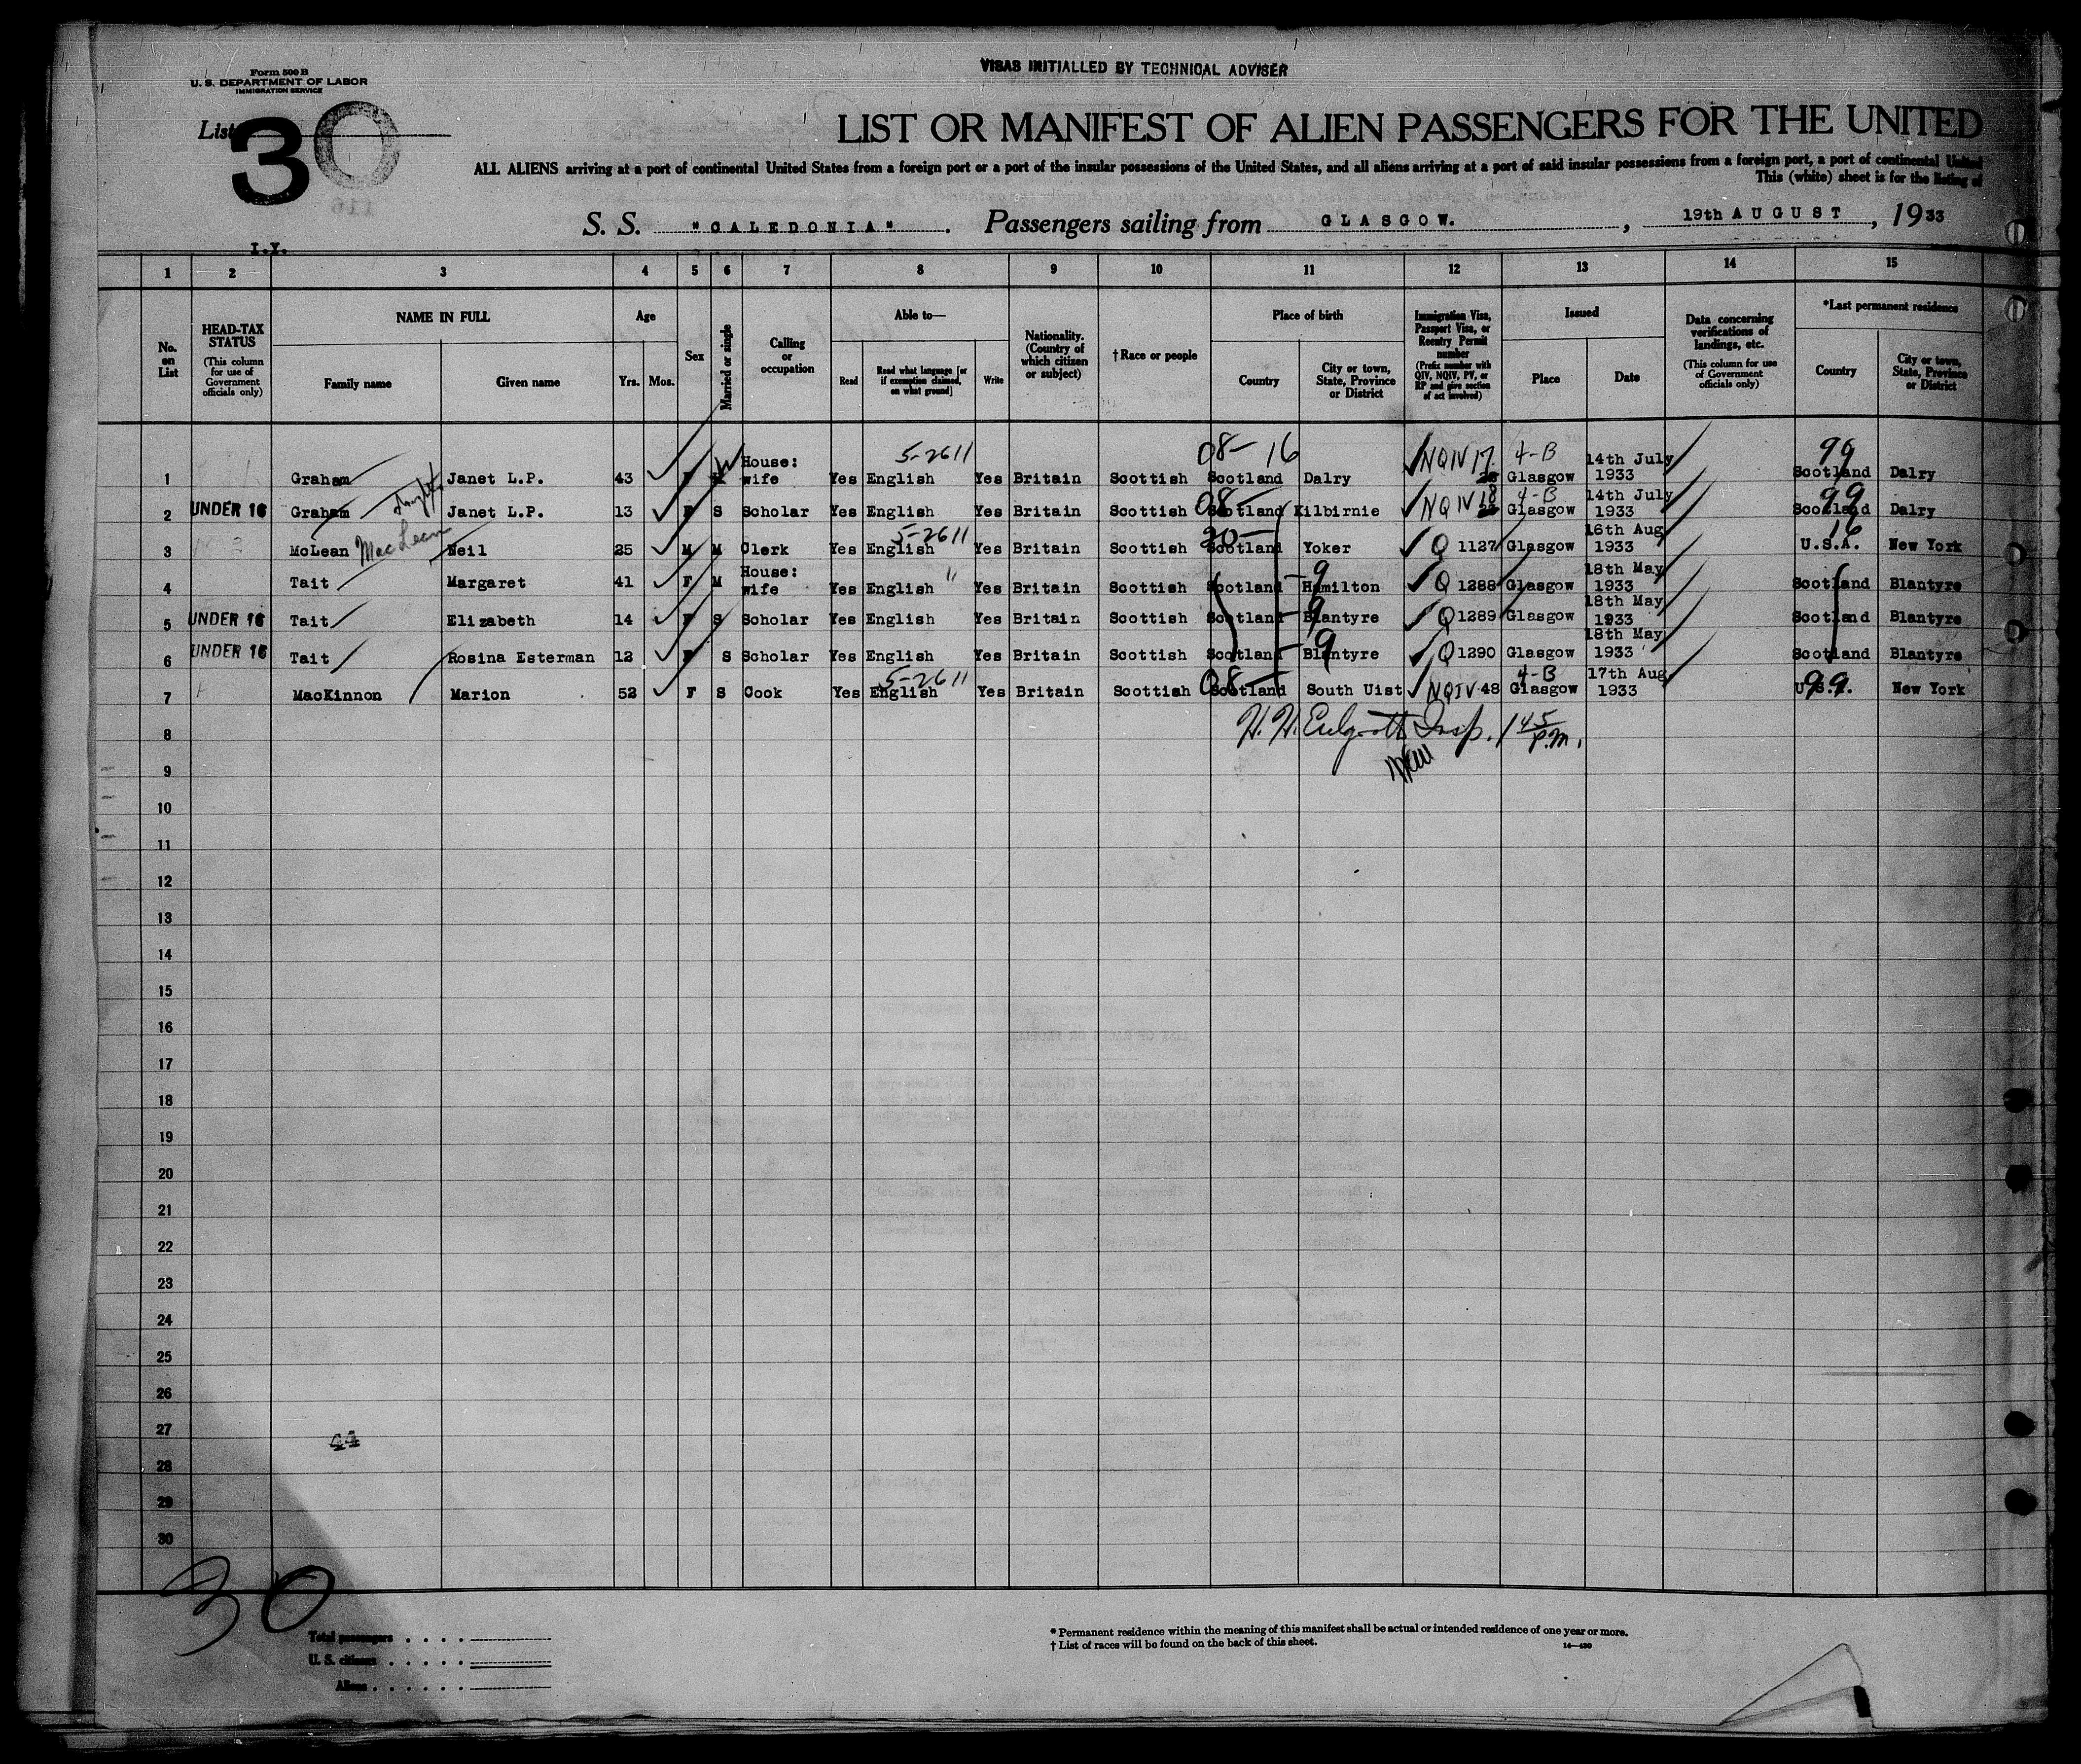 Form 500 B
U. S. DEPARTMENT OF LABOR
IMMIGRATION SERVICE
VISAS INITIALLED BY TECHNICAL ADVISER
List 30
LIST OR MANIFEST OF ALIEN PASSENGERS FOR THE UNITED
ALL ALIENS arriving at a port of continental United States from a foreign port or a port of the insular possessions of the United States, and all aliens arriving at a port of said insular possessions from a foreign port, a port of continental United
This (white) sheet is for the listing of
116
S. S. "CALEDONIA". Passengers sailing from GLASGOW. , 19th AUGUST , 1933
I.Y.
1 2 3 4 5 6 7 8 9 10 11 12 13 14 15
No. on List
HEAD-TAX STATUS
(This column for use of Government officials only)
NAME IN FULL
Family name Given name
Age
Yrs. Mos.
Sex
Married or single
Calling or occupation
Able to—
Read
Read what language [or if exemption claimed, on what ground]
Write
Nationality. (Country of which citizen or subject)
†Race or people
Place of birth
Country
City or town, State, Province or District
Immigration Visa, Passport Visa, or Reentry Permit number
(Prefix number with QIV, NQIV, PV, or RP and give section of act involved)
Issued
Place Date
Data concerning verifications of landings, etc.
(This column for use of Government officials only)
*Last permanent residence
Country
City or town, State, Province or District
5-2611 08- 16 4-B 99
1 Graham Janet L.P. 43 F W House: wife Yes English Yes Britain Scottish Scotland Dalry NQIV 17 Glasgow 14th July 1933 Scotland Dalry
08- 4-B 99
2 UNDER 16 Graham Janet L.P. 13 F S Scholar Yes English Yes Britain Scottish Scotland Kilbirnie NQIV 18 Glasgow 14th July 1933 Scotland Dalry
5-2611 20- 16
3 McLean MacLean Neil 25 M M Clerk Yes English Yes Britain Scottish Scotland Yoker Q 1127 Glasgow 16th Aug 1933 U.S.A. New York
4 Tait Margaret 41 F M House: wife Yes English " Yes Britain Scottish Scotland -9 Hamilton Q 1288 Glasgow 18th May 1933 Scotland Blantyre
5 UNDER 16 Tait Elizabeth 14 F S Scholar Yes English Yes Britain Scottish Scotland -9 Blantyre Q 1289 Glasgow 18th May 1933 Scotland Blantyre
6 UNDER 16 Tait Rosina Esterman 12 F S Scholar Yes English Yes Britain Scottish Scotland -9 Blantyre Q 1290 Glasgow 18th May 1933 Scotland Blantyre
5-2611 08- 4-B 99
7 MacKinnon Marion 52 F S Cook Yes English Yes Britain Scottish Scotland South Uist NQIV 48 Glasgow 17th Aug 1933 U.S.A. New York
8 H. H. Insp. 1 45 P.M.
9
10
11
12
13
14
15
16
17
18
19
20
21
22
23
24
25
26
27
44
28
29
30
30
Total passengers . . . .
U. S. citizens . . . . .
Aliens . . . . . .
* Permanent residence within the meaning of this manifest shall be actual or intended residence of one year or more.
† List of races will be found on the back of this sheet.
14—430